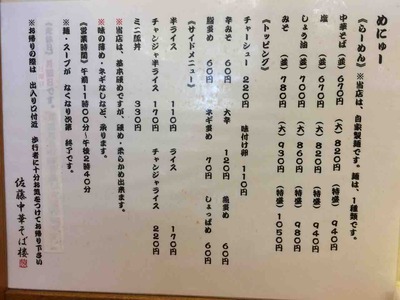 めにゅー
《らーめん》※当店は、自家製麺です。麺は、1種類です。
中華そば (並) 670円 (大) 820円 (特盛) 940円
塩 (並) 670円 (大) 820円 (特盛) 940円
しょう油 (並) 700円 (大) 860円 (特盛) 980円
みそ (並) 780円 (大) 930円 (特盛) 1050円
《トッピング》
チャーシュー 220円 味付け卵 110円
辛みそ 60円 大辛 120円 魚多め 60円
脂多め 60円 ネギ多め 70円 しょっぱめ 60円
《サイドメニュー》
半ライス 110円 ライス 170円
チャンジャ半ライス 170円 チャンジャライス 220円
ミニ豚丼 330円
※当店は、基本硬めですが、硬め・柔らかめ出来ます。
※味の薄め・ネギなしなど、承ります。
《営業時間》午前11時00分~午後2時40分
※麺・スープが なくなり次第 終了です。
※お帰りの際は 出入り口付近 歩行者に十分お気をつけてお帰り下さい
佐藤中華そば楼